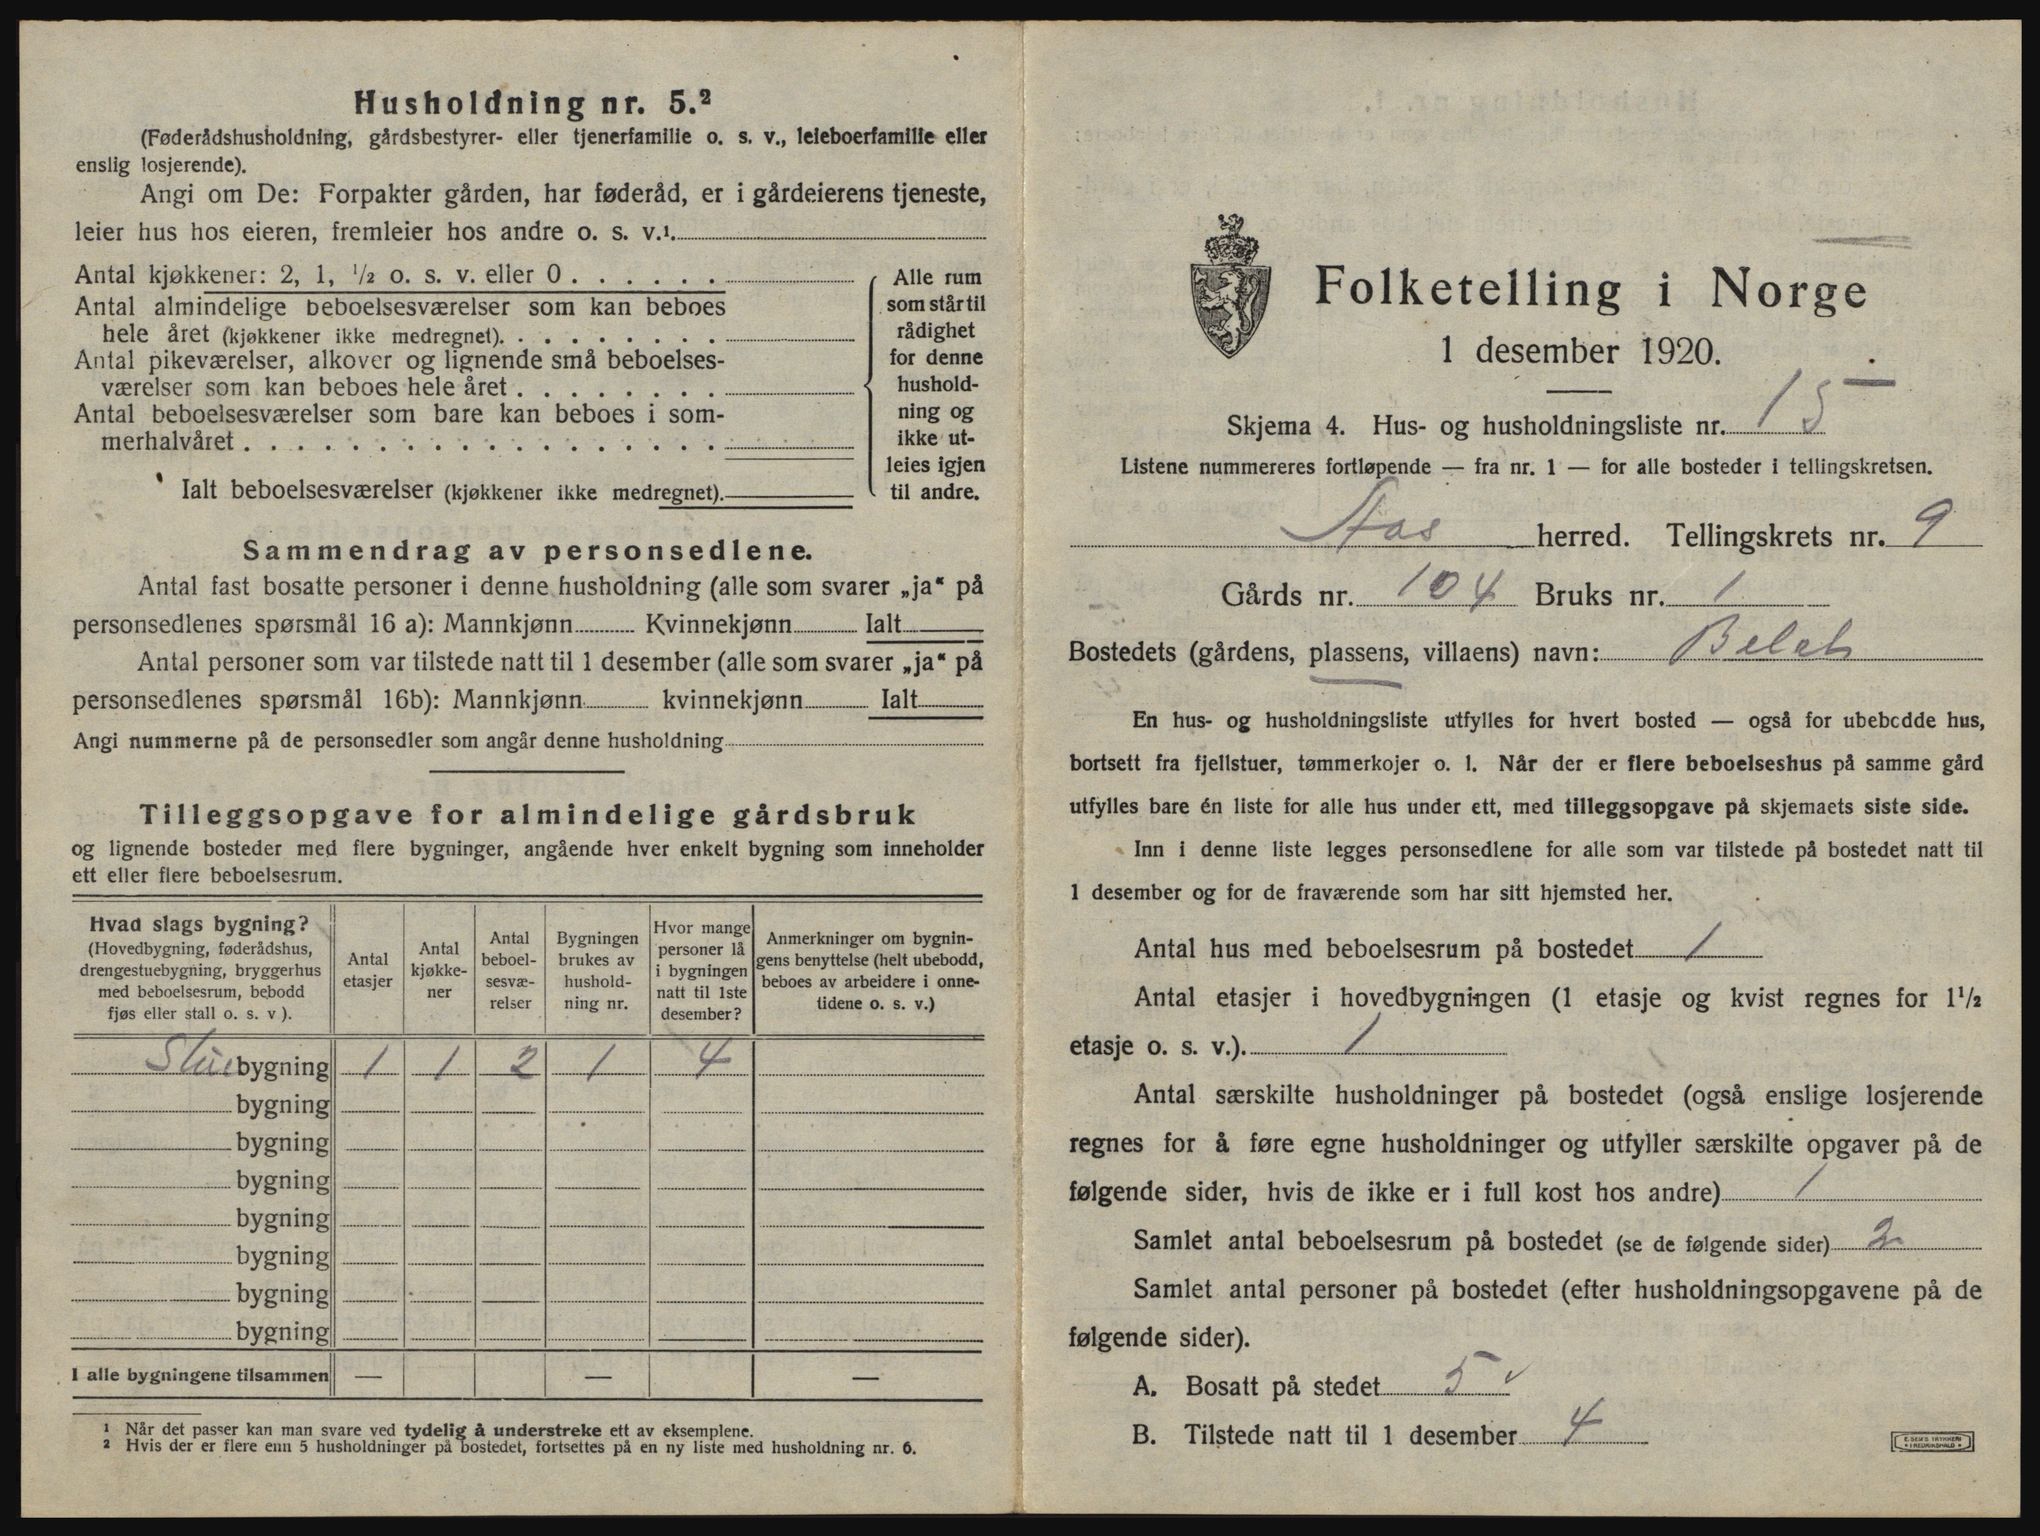 Husholdning nr. 5.²
(Føderådshusholdning, gårdsbestyrer- eller tjenerfamilie o. s. v., leieboerfamilie eller
enslig losjerende).
Angi om De: Forpakter gården, har føderåd, er i gårdeierens tjeneste,
leier hus hos eieren, fremleier hos andre o. s. v.¹.
Antal kjøkkener: 2, 1, ½ o. s. v. eller 0 . . . . . .
Antal almindelige beboelsesværelser som kan beboes
hele året (kjøkkener ikke medregnet). . . . . . . . .
Antal pikeværelser, alkover og lignende små beboelses-
værelser som kan beboes hele året . . . . . . . .
Antal beboelsesværelser som bare kan beboes i som-
merhalvåret . . . . . . . . . . . . . . . . . .
Ialt beboelsesværelser (kjøkkener ikke medregnet).
Alle rum
som står til
rådighet
for denne
hushold-
ning og
ikke ut-
leies igjen
til andre.
Sammendrag av personsedlene.
Antal fast bosatte personer i denne husholdning (alle som svarer „ja“ på
personsedlenes spørsmål 16 a): Mannkjønn Kvinnekjønn Ialt
Antal personer som var tilstede natt til 1 desember (alle som svarer „ja“ på
personsedlenes spørsmål 16b): Mannkjønn kvinnekjønn Ialt
Angi nummerne på de personsedler som angår denne husholdning
Tilleggsopgave for almindelige gårdsbruk
og lignende bosteder med flere bygninger, angående hver enkelt bygning som inneholder
ett eller flere beboelsesrum.
Hvad slags bygning?
(Hovedbygning, føderådshus,
drengestuebygning, bryggerhus
med beboelsesrum, bebodd
fjøs eller stall o. s. v ).
Antal
etasjer
Antal
kjøkke-
ner
Antal
beboel-
sesvæ-
relser
Bygningen
brukes av
hushold-
ning nr.
Hvor mange
personer lå
i bygningen
natt til 1ste
desember?
Anmerkninger om bygnin-
gens benyttelse (helt ubebodd,
beboes av arbeidere i onne-
tidene o. s. v.)
Stuebygning 1 1 2 1 4
bygning
bygning
bygning
bygning
bygning
bygning
bygning
I alle bygningene tilsammen — — —
¹ Når det passer kan man svare ved tydelig å understreke ett av eksemplene.
² Hvis der er flere enn 5 husholdninger på bostedet, fortsettes på en ny liste med husholdning nr. 6.
Folketelling i Norge
1 desember 1920.
Skjema 4. Hus- og husholdningsliste nr. 15
Listene nummereres fortløpende — fra nr. 1 — for alle bosteder i tellingskretsen.
Aas herred. Tellingskrets nr. 9
Gårds nr. 104 Bruks nr. 1
Bostedets (gårdens, plassens, villaens) navn:
En hus- og husholdningsliste utfylles for hvert bosted — også for ubebodde hus,
bortsett fra fjellstuer, tømmerkojer o. l. Når der er flere beboelseshus på samme gård
utfylles bare én liste for alle hus under ett, med tilleggsopgave på skjemaets siste side.
Inn i denne liste legges personsedlene for alle som var tilstede på bostedet natt til
1 desember og for de fraværende som har sitt hjemsted her.
Antal hus med beboelsesrum på bostedet 1
Antal etasjer i hovedbygningen (1 etasje og kvist regnes for 1½
etasje o. s. v.). 1
Antal særskilte husholdninger på bostedet (også enslige losjerende
regnes for å føre egne husholdninger og utfyller særskilte opgaver på de
følgende sider, hvis de ikke er i full kost hos andre) 1
Samlet antal beboelsesrum på bostedet (se de følgende sider) 2
Samlet antal personer på bostedet (efter husholdningsopgavene på de
følgende sider).
A. Bosatt på stedet 5
B. Tilstede natt til 1 desember 4
E. SEM'S TRYKKERI
• FREDRIKSHALD •